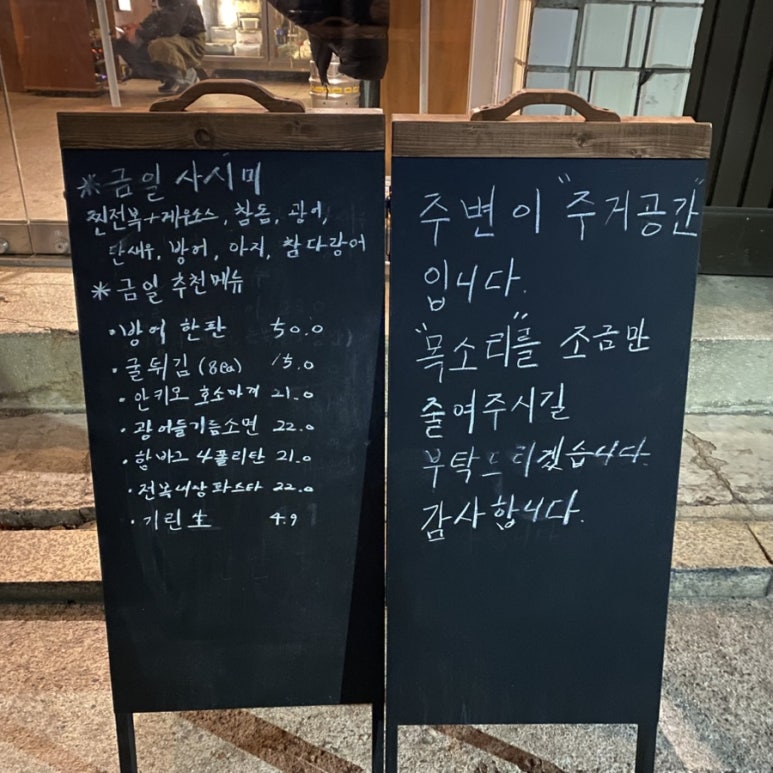 ※금일 사시미
찐전복+게우소스, 참돔, 광어,
단새우, 방어, 아지, 참다랑어
※금일 추천메뉴
·방어 한판 50.0
·굴튀김(8ea) 15.0
·안키모 호소마끼 21.0
·광어들기름소면 22.0
·함바그 나폴리탄 21.0
·전복내장파스타 22.0
·기린生 4.9
주변이 "주거공간"
입니다.
"목소리"를 조금만
줄여주시길
부탁드리겠습니다.
감사합니다.